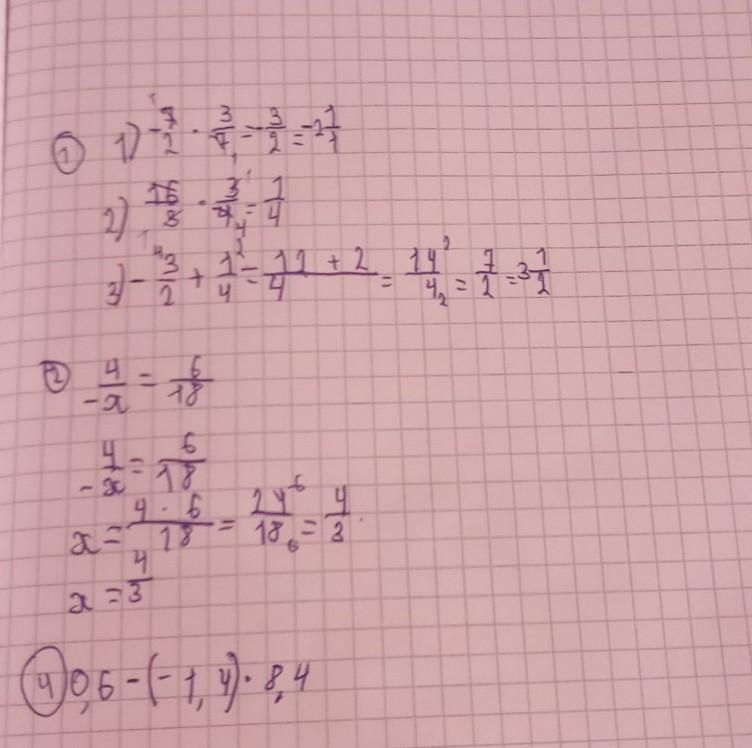 ① 1) -7/2 · 3/7 = -3/2 = -1 1/1
2) 16/8 · 3/4 = 1/4
3) - 3/2 + 1/4 = 12 + 2/4 = 14/4 = 7/2 = 3 1/2
② 4/-x = 6/18
4/-x = 6/18
x = 4 · 6/18 = 24/18 = 4/3
x = 4/3
④ 0,6 - (-1,4) · 8,4